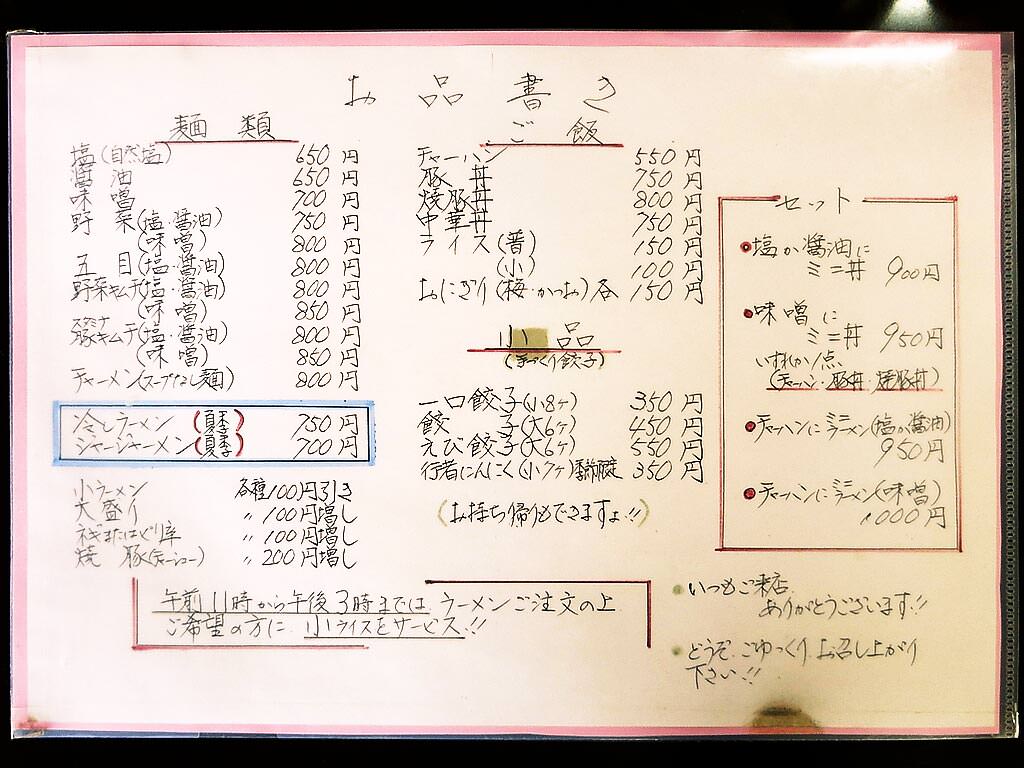 お品書き
麺類
塩(自然塩) 650円
醤油 650円
味噌 700円
野菜(塩・醤油) 750円
(味噌) 800円
五目(塩・醤油) 800円
野菜キムチ(塩・醤油) 800円
(味噌) 850円
豚キムチ(塩・醤油) 800円
(味噌) 850円
チャーメン(スープなし麺) 800円
冷しラーメン(夏季) 750円
ジャージャーメン(夏季) 700円
小ラーメン 各種100円引き
大盛り 〃100円増し
ネギまたはピリ辛 〃100円増し
焼豚(チャーシュー) 〃200円増し
ご飯
チャーハン 550円
豚丼 750円
焼豚丼 800円
中華丼 750円
ライス(普) 150円
(小) 100円
おにぎり(梅・かつお)各 150円
小品
(手づくり餃子)
一口餃子(小8ヶ) 350円
餃子(大6ヶ) 450円
えび餃子(大6ヶ) 550円
行者にんにく(小7ヶ) 350円
(お持ち帰りもできますょ!!)
セット
●塩か醤油に
ミニ丼 900円
●味噌に
ミニ丼 950円
いずれか1点
(チャーハン・豚丼・焼豚丼)
●チャーハンにミニラーメン(塩か醤油)
950円
●チャーハンにミニラーメン(味噌)
1000円
午前11時から午後3時までは ラーメンご注文の上
ご希望の方に 小ライスをサービス!!
●いつもご来店
ありがとうございます!!
●どうぞ、ごゆっくり、お召し上がり
下さい!!